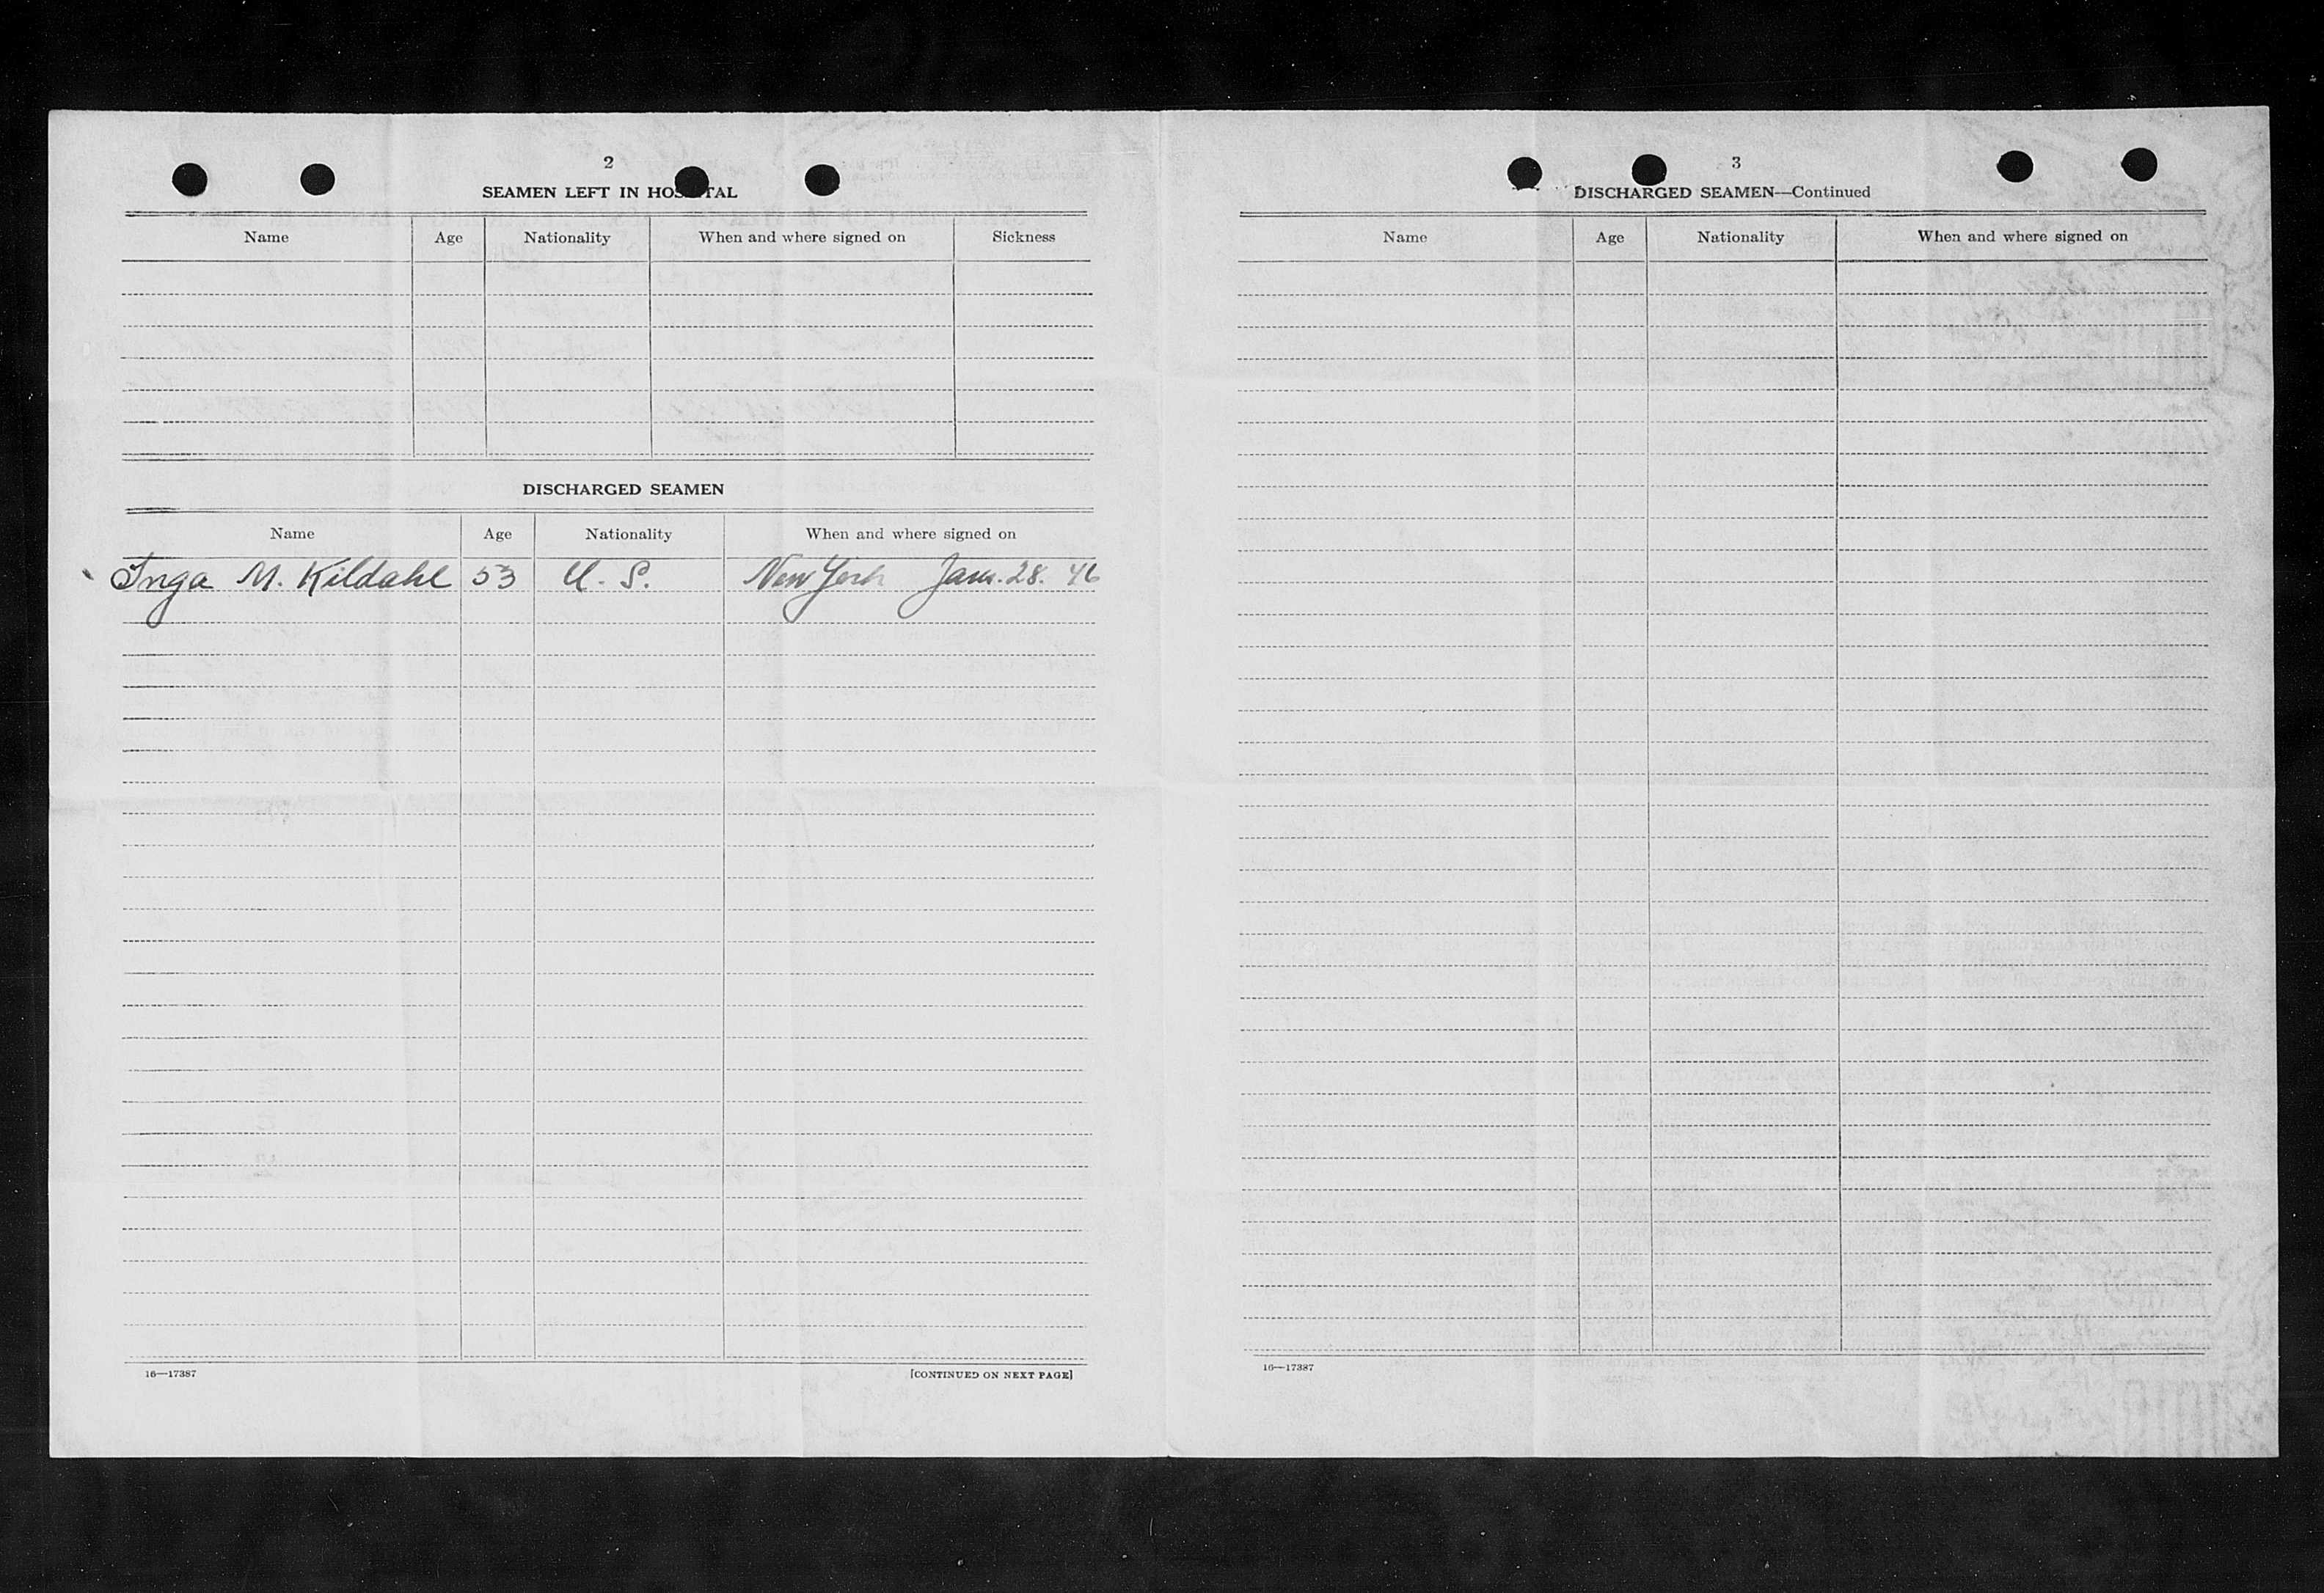 2
SEAMEN LEFT IN HOSPITAL
Name Age Nationality When and where signed on Sickness
DISCHARGED SEAMEN
Name Age Nationality When and where signed on
Inga M. Kildahl 53 U. S. New York Jan. 28. 46
16—17387 [CONTINUED ON NEXT PAGE]
3
DISCHARGED SEAMEN—Continued
Name Age Nationality When and where signed on
16—17387